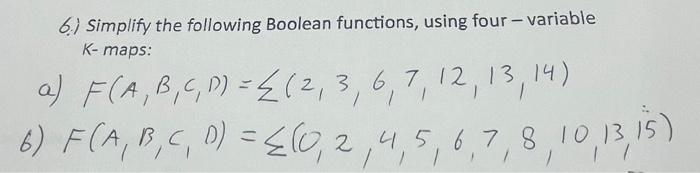 6.) Simplify the following Boolean functions, using four – variable
K- maps:
a) F(A,B,C,D) = Σ(2,3,6,7,12,13,14)
b) F(A,B,C,D) = Σ(0,2,4,5,6,7,8,10,13,15)